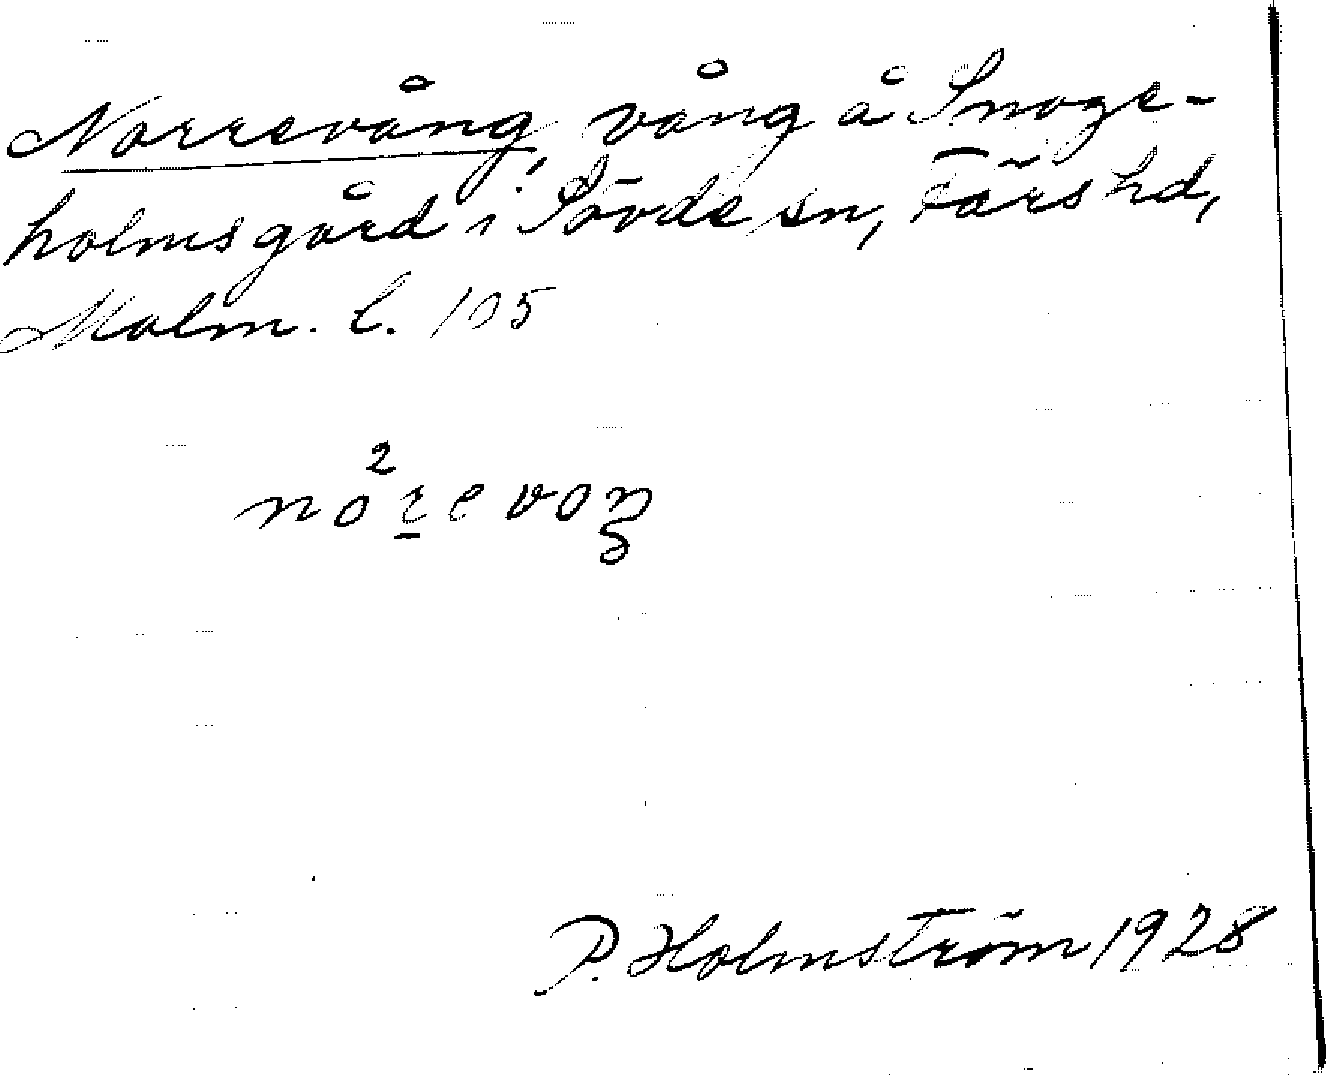 Norrevång, vång å Snoge-
holmsgård i Sövde sn, Färs hd,
Malm. l. 105
2
norevoŋ
P. Holmström 1928